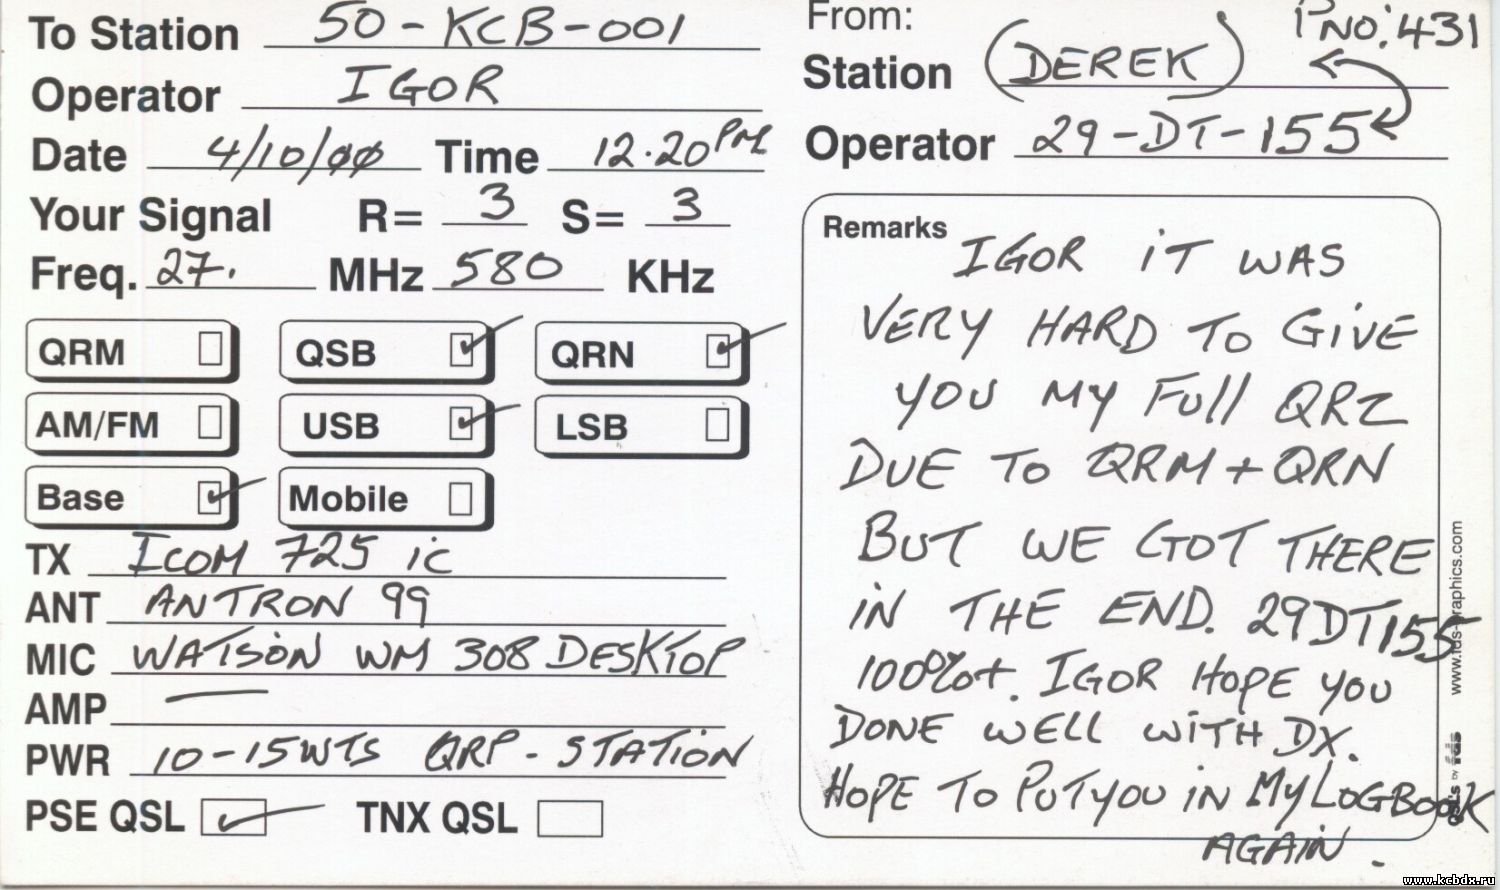 To Station 50-KCB-001
Operator IGOR
Date 4/10/00 Time 12.20 PM
Your Signal R= 3 S= 3
Freq. 27. MHz 580 KHz
QRM QSB QRN
AM/FM USB LSB
Base Mobile
TX ICOM 725 iC
ANT ANTRON 99
MIC WATSON WM 308 DESKTOP
AMP —
PWR 10-15WTS QRP-STATION
PSE QSL TNX QSL
From:
PNO: 431
Station (DEREK)
Operator 29-DT-155
Remarks
IGOR iT WAS
VERY HARD TO GiVE
YOU MY Full QRZ
DUE TO QRM + QRN
BUT WE GOT THERE
iN THE END. 29DT155
100%+. IGOR HOPE YOU
DONE WELL WiTH DX.
HOPE TO PUT YOU iN MY LOGBOOK
AGAiN.
www.fds-graphics.com
BY fds
www.kcbdx.ru